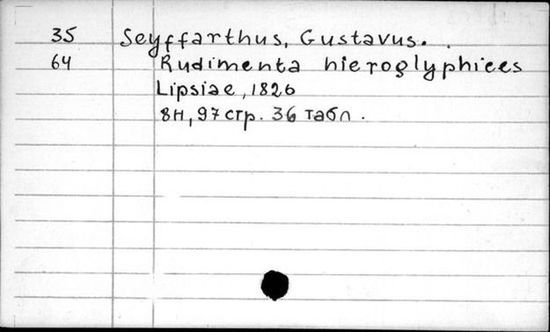 35 Seyffarthus, Gustavus.
64 Rudimenta hieroglyphices
Lipsiae, 1826
8н, 97 стр. 36 табл.